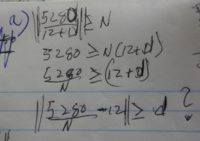 a) ||5280/12+d|| ≥ N
5280 ≥ N(12+d)
5280/N ≥ (12+d)
||5280/N - 12|| ≥ d ?